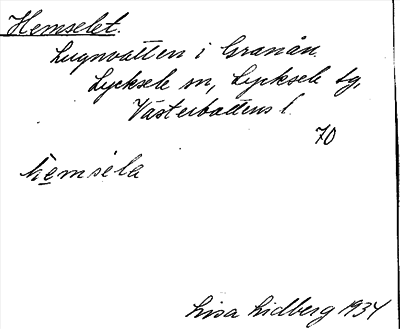 Hemselet.
Lugnvatten i Granån.
Lycksele sn, Lycksele lg,
Västerbottens l.
70
hemsela
Lisa Lidberg 1934